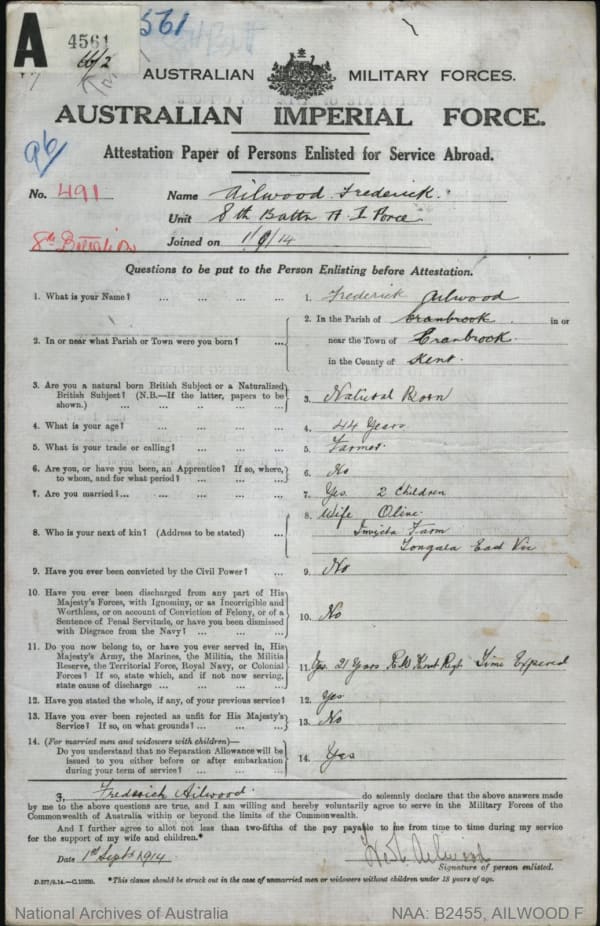 A
4561
561
AUSTRALIAN MILITARY FORCES.
AUSTRALIAN IMPERIAL FORCE.
Attestation Paper of Persons Enlisted for Service Abroad.
96
No. 491 Name Ailwood Frederick.
Unit 8th Battn A I Force
8th Battalion Joined on 1/9/14
Questions to be put to the Person Enlisting before Attestation.
1. What is your Name? ... ... ... ... 1. Frederick Ailwood
2. In or near what Parish or Town were you born? ... 2. In the Parish of Cranbrook in or
near the Town of Cranbrook.
in the County of Kent.
3. Are you a natural born British Subject or a Naturalized
British Subject? (N.B.—If the latter, papers to be
shown.) ... ... ... ... ... 3. Natural Born
4. What is your age? ... ... ... ... 4. 44 Years
5. What is your trade or calling? ... ... ... 5. Farmer.
6. Are you, or have you been, an Apprentice? If so, where,
to whom, and for what period? ... ... ... 6. No
7. Are you married? ... ... ... ... 7. Yes. 2 Children
8. Who is your next of kin? (Address to be stated) ... 8. Wife Olive.
Invicta Farm
Tongala East Vic
9. Have you ever been convicted by the Civil Power? ... 9. No
10. Have you ever been discharged from any part of His
Majesty's Forces, with Ignominy, or as Incorrigible and
Worthless, or on account of Conviction of Felony, or of a
Sentence of Penal Servitude, or have you been dismissed
with Disgrace from the Navy? ... ... ... 10. No
11. Do you now belong to, or have you ever served in, His
Majesty's Army, the Marines, the Militia, the Militia
Reserve, the Territorial Force, Royal Navy, or Colonial
Forces? If so, state which, and if not now serving,
state cause of discharge ... ... ... ... 11. Yes. 21 Years R.W. Kent Regt Time Expired
12. Have you stated the whole, if any, of your previous service? 12. Yes
13. Have you ever been rejected as unfit for His Majesty's
Service? If so, on what grounds? ... ... ... 13. No
14. (For married men and widowers with children)—
Do you understand that no Separation Allowance will be
issued to you either before or after embarkation
during your term of service? ... ... ... 14. Yes
I, Frederick Ailwood. do solemnly declare that the above answers made
by me to the above questions are true, and I am willing and hereby voluntarily agree to serve in the Military Forces of the
Commonwealth of Australia within or beyond the limits of the Commonwealth.
And I further agree to allot not less than two-fifths of the pay payable to me from time to time during my service
for the support of my wife and children.*
Date 1st Sept 1914. Fredk. Ailwood
Signature of person enlisted.
*This clause should be struck out in the case of unmarried men or widowers without children under 18 years of age.
National Archives of Australia NAA: B2455, AILWOOD F